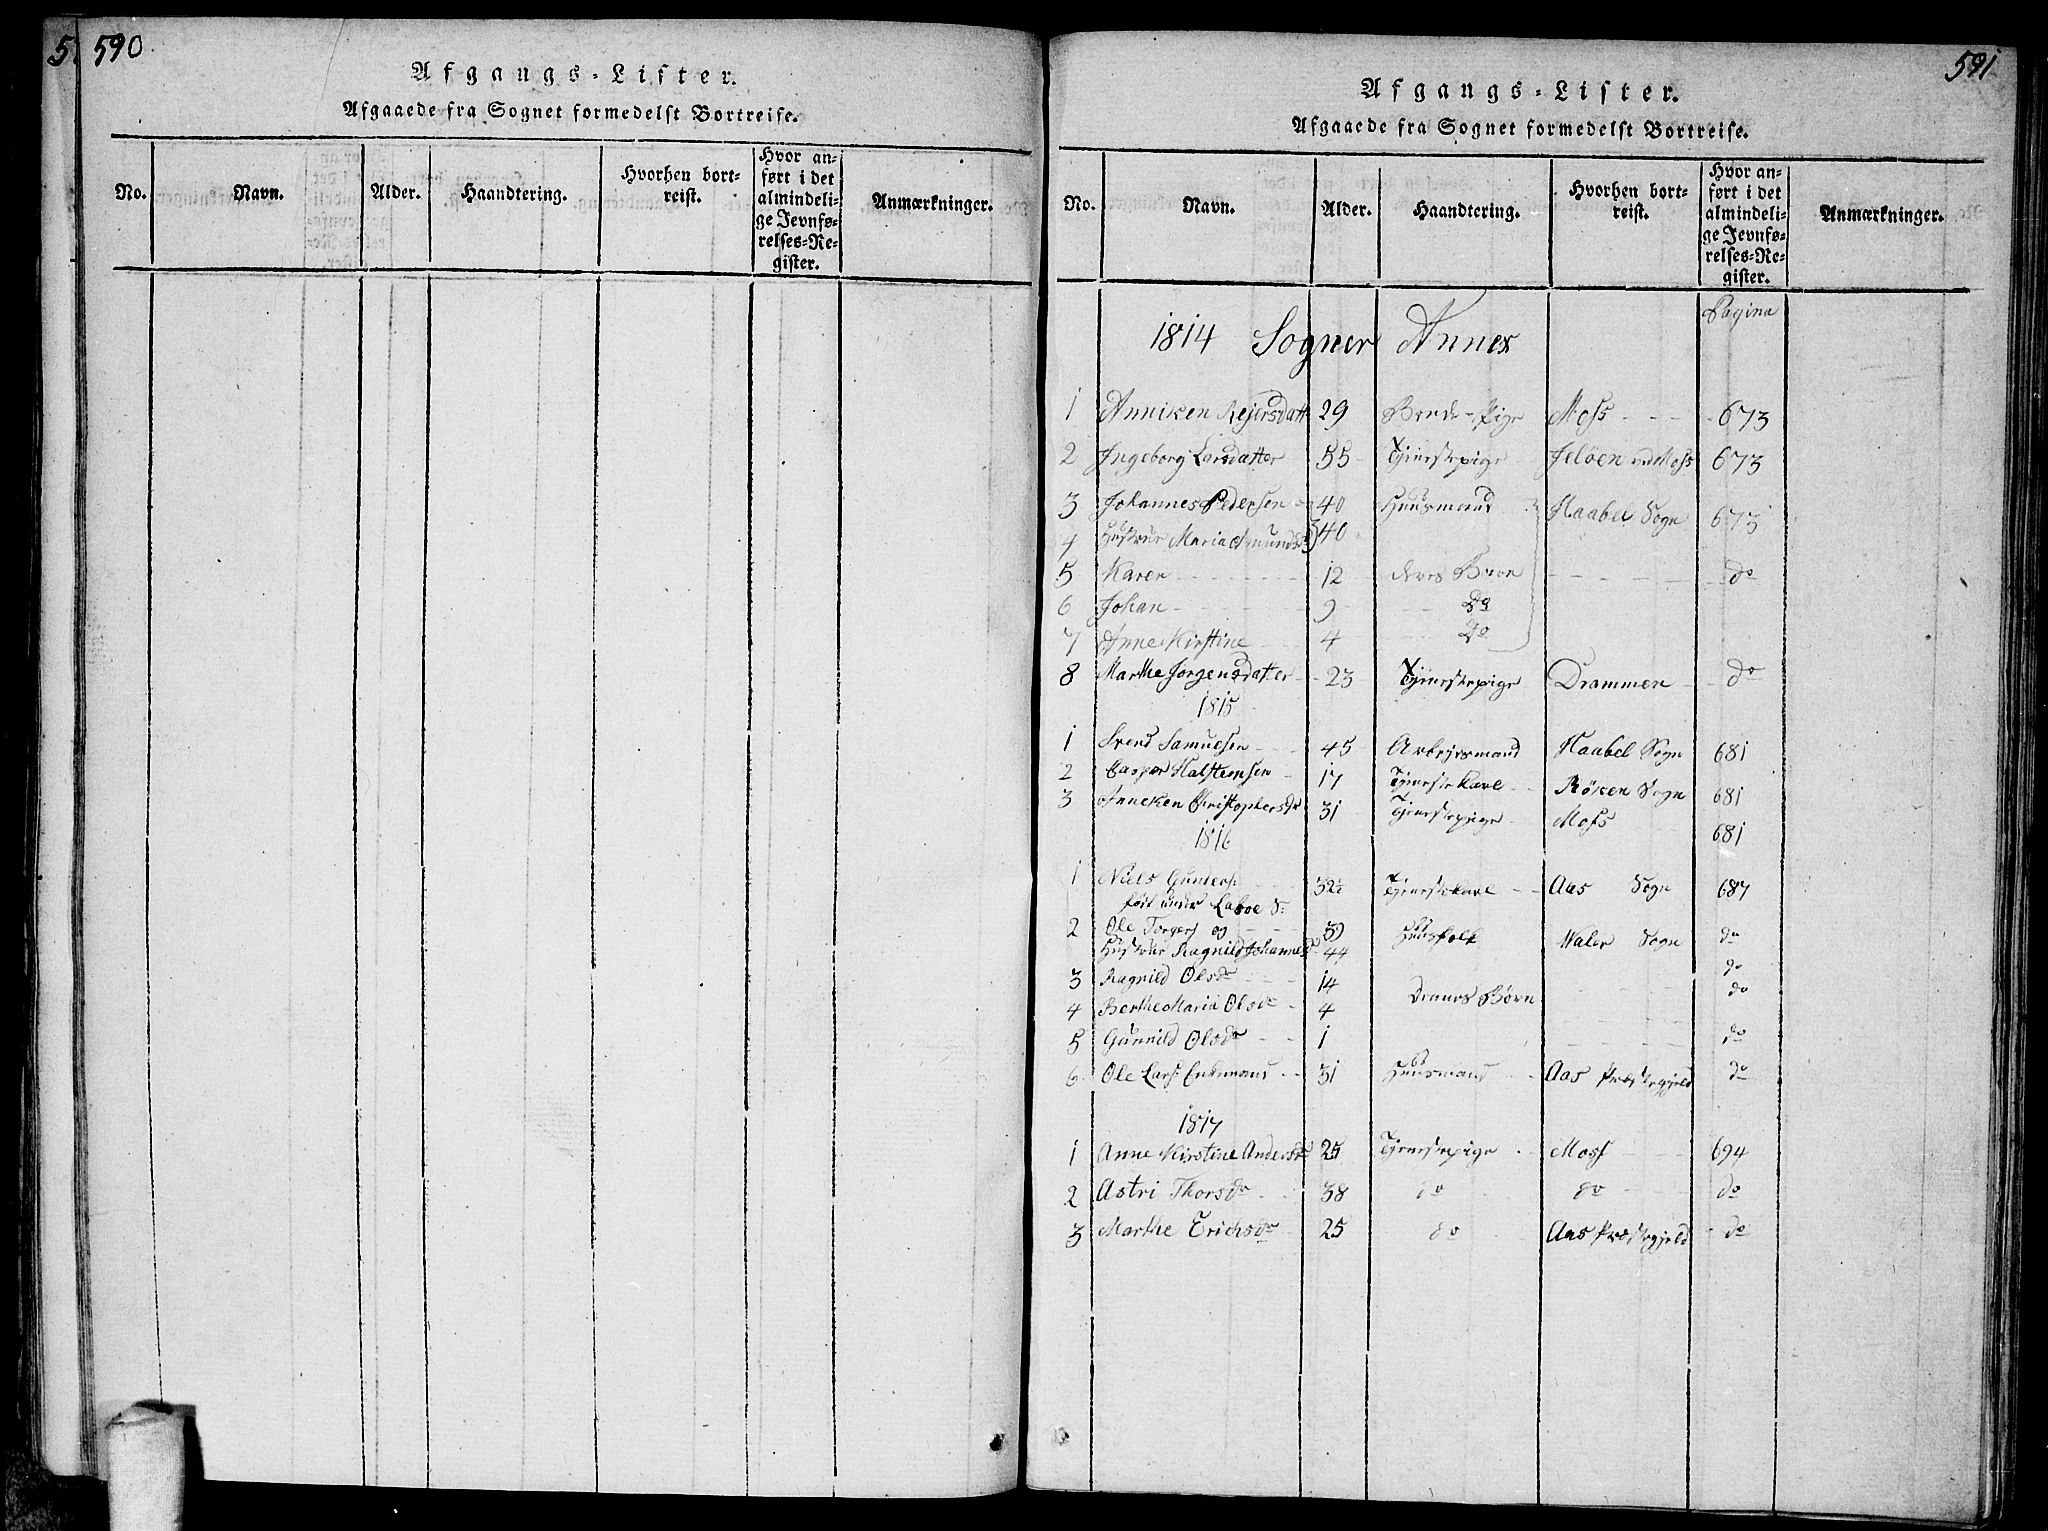 590
Afgangs-Lister.
Afgaaede fra Sognet formedelst Bortreise.
No. Navn. Alder. Haandtering. Hvorhen bortreist. Hvor anført i det almindelige Jevnførelses-Register. Anmærkninger.
591
Afgangs-Lister.
Afgaaede fra Sognet formedelst Bortreise.
No. Navn. Alder. Haandtering. Hvorhen bortreist. Hvor anført i det almindelige Jevnførelses-Register. Anmærkninger.
Pagina
1814 Sogner Annex
1 Anniken Rejersdatt 29 Pige Moss 673
2 Ingeborg Larsdatter 55 Tjenestepige Jeløen ved Moss 673
3 Johannes Pedersen 40 Huusmand Haabel Sogn 673
4 Hustrue Maria Amundsdr 40
5 Karen 12 deres Børn do
6 Johan 9 Do
7 Anne Kirstine 4 Do
8 Marthe Jørgensdatter 23 Tjenestepige Drammen do
1815
1 Svend Samuelsen 45 Arbejdsmand Haabel Sogn 681
2 Casper Halsteensen 17 Tjenestekarl Røken Sogn 681
3 Anneken Christophersdr 31 Tjenestepige Moss 681
1816
1 Niels Gunders: 32½ Tjenestekarl Aas Sogn 687
født under
2 Ole Torgers og 39 Huusfolk Waler Sogn do
Hustrue Ragnild Johannesd 44 do
3 Ragnild Olsdr 14 Dennes Børn do
4 Berthe Maria Olsdr 4
5 Gunnild Olsdr 1 do
6 Ole Lars: Enkemand 31 Huusmand Aas Præstegjeld do
1817
1 Anne Kirstine Andersdr 25 Tjenestepige Moss 694
2 Astri Thorsdr 38 do do do
3 Marthe Erichsdr 25 do Aas Præstegjeld do